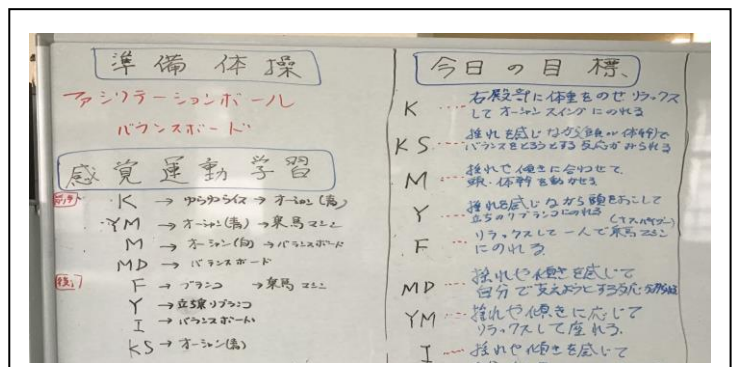 準備体操
ファシリテーションボール
バランスボード
感覚運動学習
K → ゆらゆらイス → オーシャン(青)
YM → オーシャン(青) → 乗馬マシン
M → オーシャン(白) → バランスボード
MD → バランスボード
F → ブランコ → 乗馬マシン
Y → 立ち乗りブランコ
I → バランスボート
KS → オーシャン(青)
今日の目標、
K … 右殿部に体重をのせリラックス
して オーシャンスイングにのれる
KS … 揺れを感じながら 体幹)で
バランスをとろうとする反応がみられる
M … 揺れや傾きに合わせて、
頭、体幹を動かせる
Y … 揺れを感じながら頭をおこして
立ちのりブランコにのれる
F … リラックスして一人で乗馬マシン
にのれる
MD … 揺れや傾きを感じて
自分で支えようとする反応
YM … 揺れや傾きに応じて
リラックスして座れる
I … 揺れや傾きを感じて